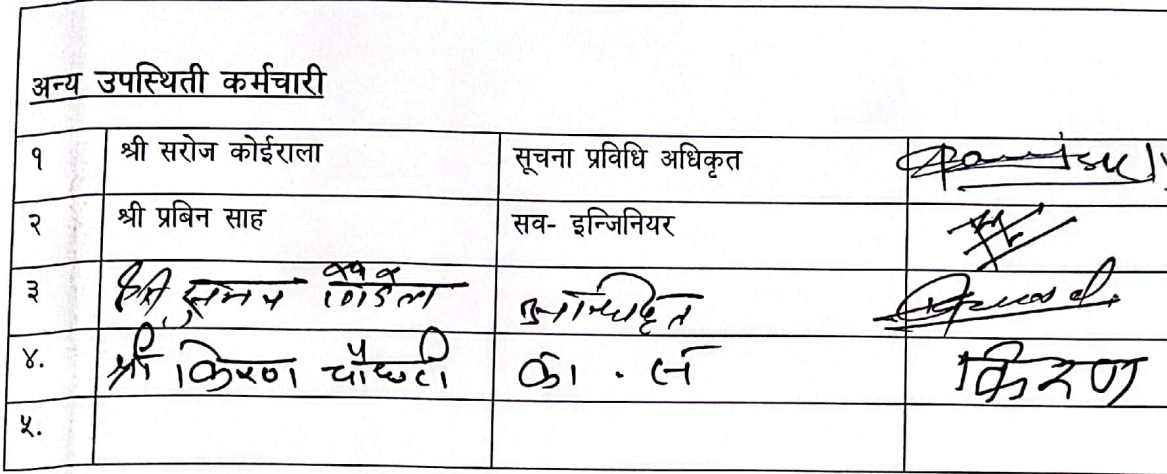 अन्य उपस्थिती कर्मचारी
१ श्री सरोज कोईराला सूचना प्रविधि अधिकृत
२ श्री प्रबिन साह सव- इन्जिनियर
३ श्री
४. श्री किरण चौधरी का . स किरण
५.